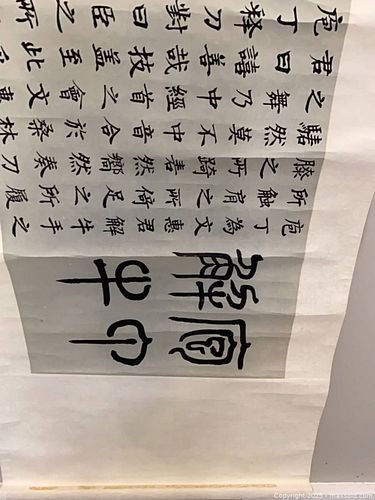 庖丁
解牛
庖丁為文惠君解牛手之
所触肩之所倚足之所履
膝之所踦砉然嚮然奏刀
騞然莫不中音合於桑林
之舞乃中經首之會文惠
君曰譆善哉技蓋至此乎
庖丁釋刀對曰臣之所